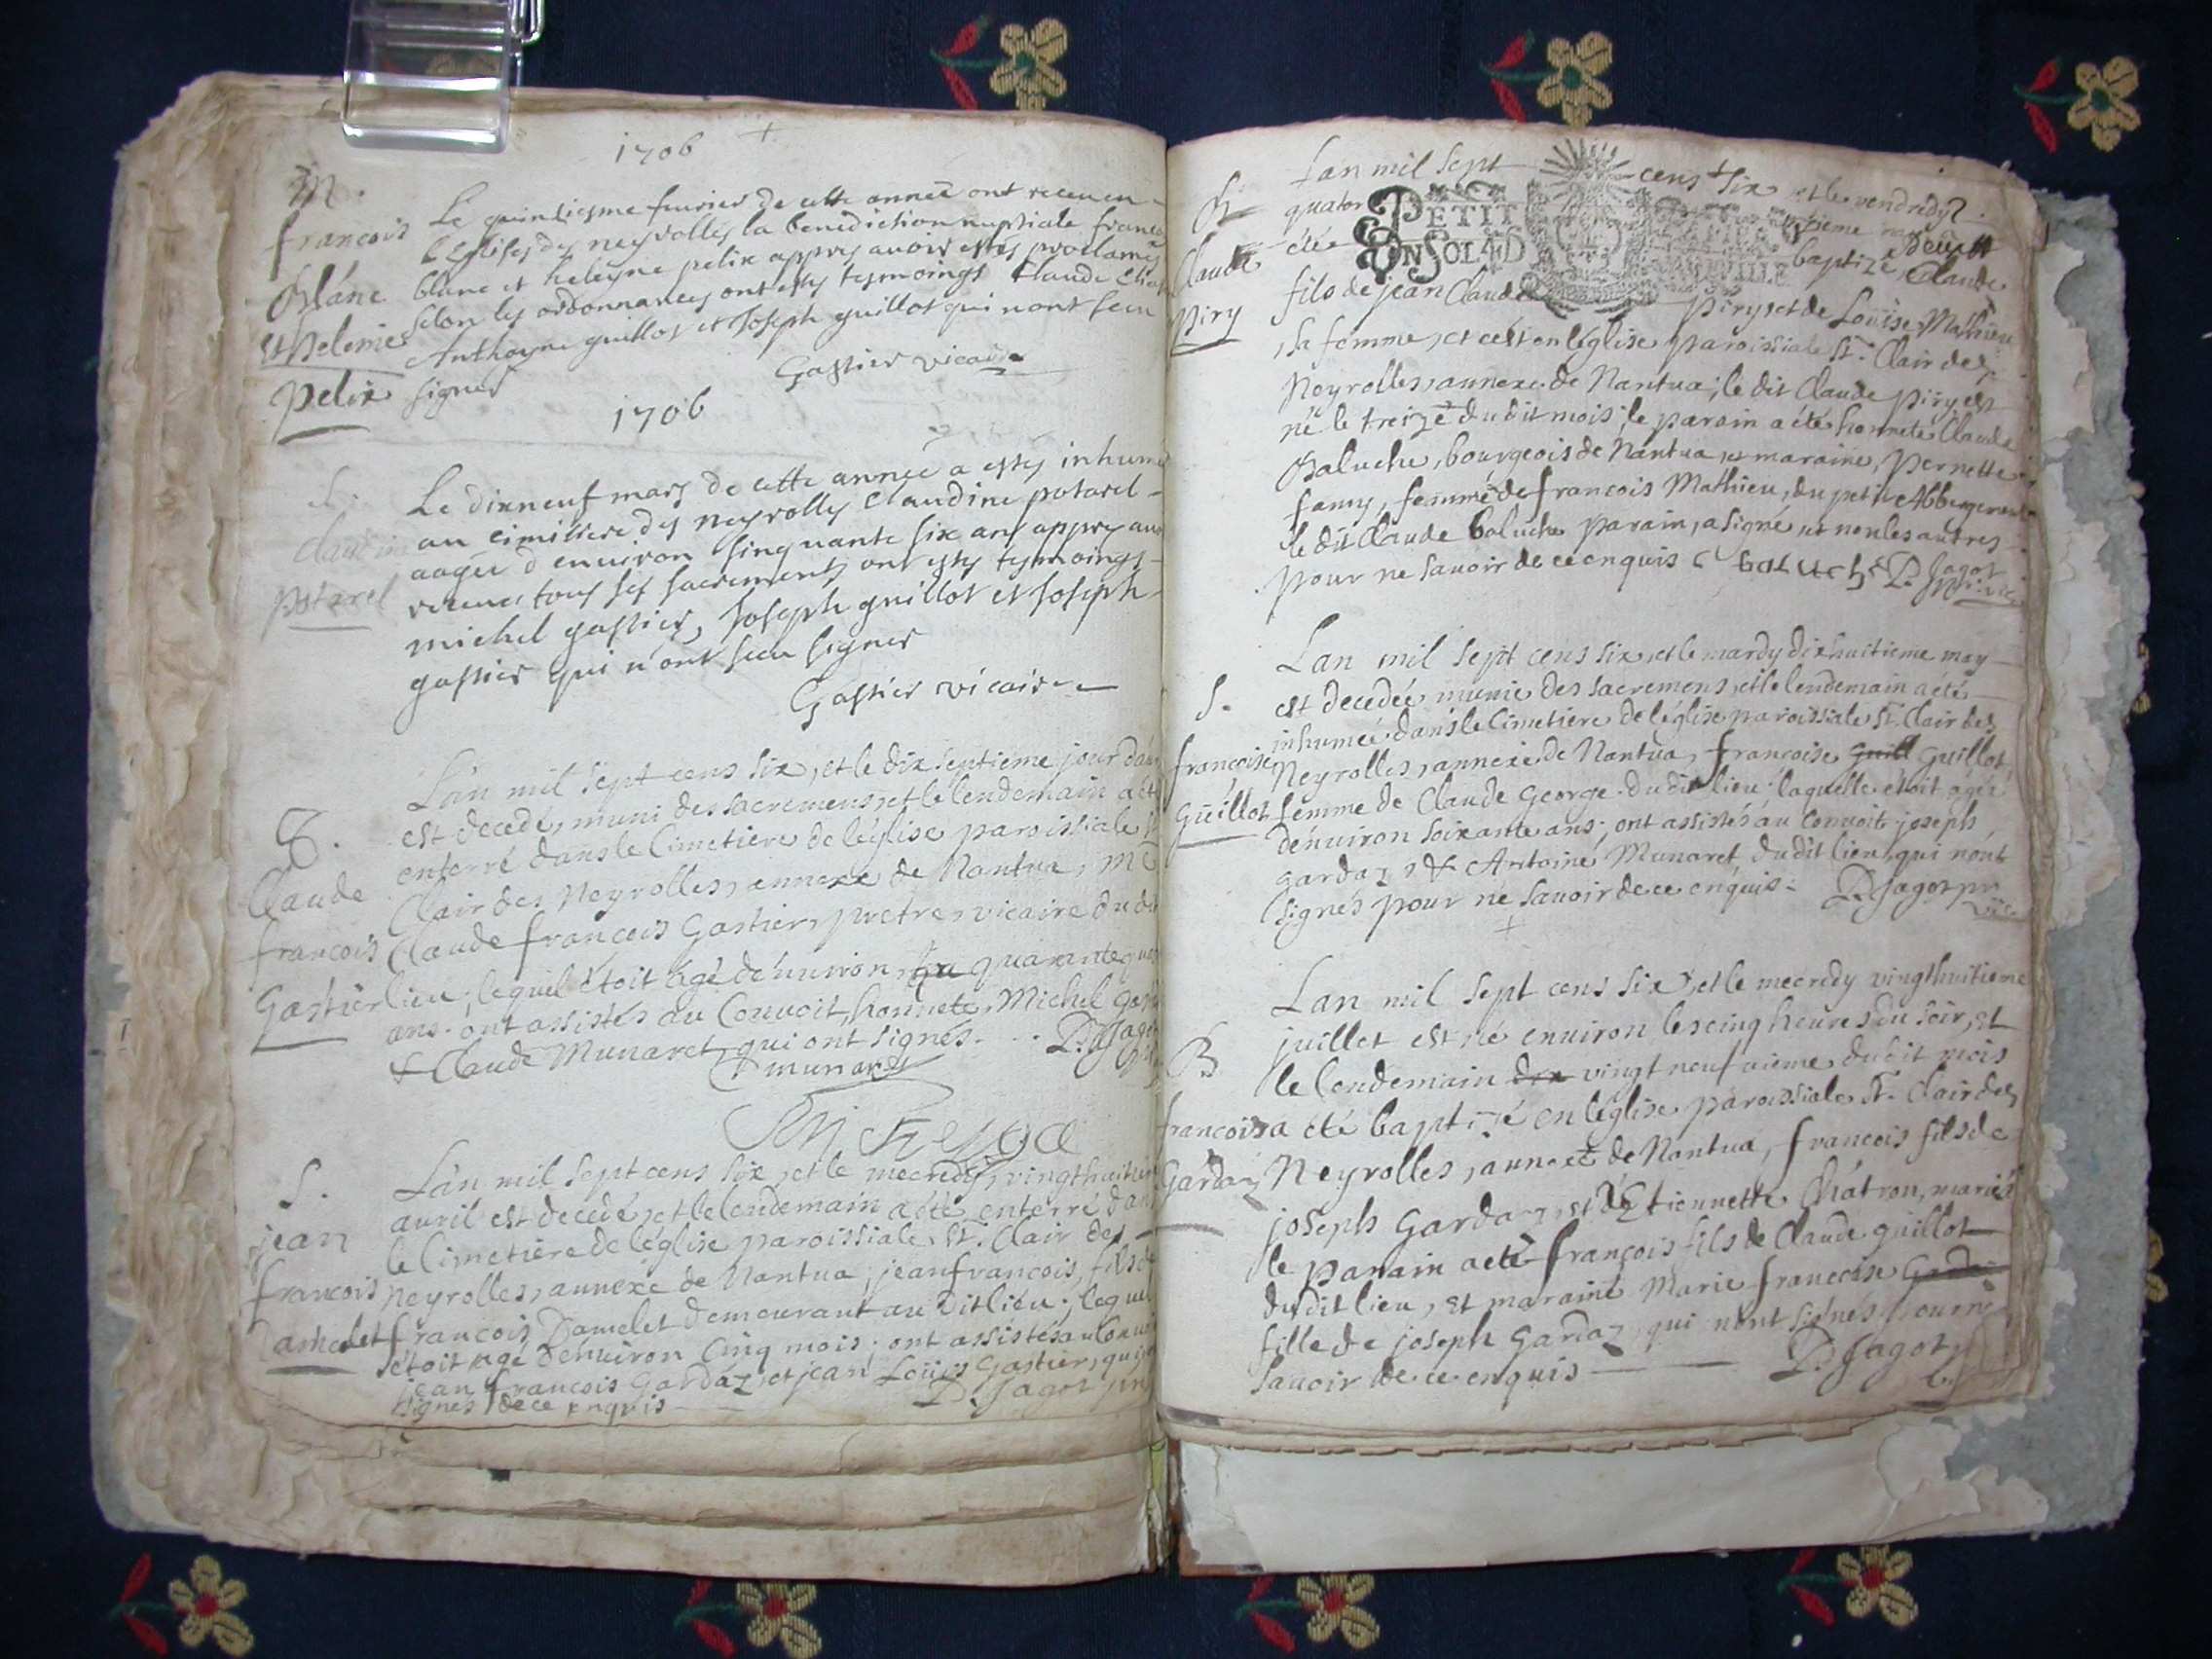 1706
M.
francois
Blanc
et helenie
pelix
Le quinziesme feurier de cette année ont receu en
l'Eglise des neyrolles la benediction nuptiale francois
blanc et heleyne pelix appres auoir estes proclames
selon les ordonnances ont estes tesmoings Claude
Anthoyne guillot et Joseph guillot qui n'ont sceu
signer
Gastier vicaire
1706
S.
Claudine
potarel
Le dixneuf mars de cette année a estes inhumé
au cimitiere des neyrolles Claudine potarel
aagée d'enuiron sinquante six ans appres auoir
receues tous ses sacrements ont estes tesmoings
michel gastier, Joseph guillot et Joseph
gastier qui n'ont sceu signer
Gastier vicaire
S.
Claude
francois
Gastier
L'an mil sept cens six, et le dix septieme jour d'au
est decedé, muni des sacremens, et le lendemain a été
enterré dans le Cimetiere de l'église paroissiale
Clair des Neyrolles, annexe de Nantua, Me
Claude francois Gastier, pretre, vicaire du dit
lieu; lequel étoit agé d'enuiron quarante
ans. ont assistés au Conuoit, honnete, Michel
& Claude Munaret, qui ont signés. D. Jagot
munaret
S.
jean
francois
Damelet
L'an mil sept cens six, et le mecredy, vingthuitieme
auril est decedé, et le lendemain a été enterré dans
le Cimetiere de l'église paroissiale St. Clair des
Neyrolles, annexe de Nantua, jean francois, fils de
francois Damelet demeurant au dit lieu; lequel
étoit agé d'enuiron Cinq mois; ont assistés au Conuoit
jean francois Gardaz, et jean Louis Gastier, qui
signés de ce enquis D. Jagot
B
Claude
Piry
Lan mil sept cens six et le vendredy
quator zieme
PETIT
ONSOLSD
été baptizé, Claude
fils de jean Claude Piry, et de Louise Mathieu
sa femme, et cest en l'église paroissiale St. Clair des
Neyrolles, annexe de Nantua; le dit Claude piry est
né le treize du dit mois; le parain a été honnete Claude
Baluche, bourgeois de Nantua, et maraine, Pernette
famy, femme de francois Mathieu, du petit Abbergement
le dit Claude baluche parain, a signé, et non les autres
pour ne sauoir de ce enquis C baluche D. Jagot
S.
francoise
Guillot
Lan mil sept cens six, et le mardy dixhuitieme may
est decedée munie des sacremens, et le lendemain a été
inhumée dans le Cimetiere de l'église paroissiale St. Clair des
Neyrolles, annexe de Nantua, francoise Guill Guillot,
femme de Claude George du dit lieu; laquelle étoit agée
d'enuiron soixante ans; ont assistés au Conuoit joseph
gardaz, & Antoine Munaret du dit lieu, qui n'ont
signés pour ne sauoir de ce enquis. D. Jagot
B
francois
Gardaz
Lan mil sept cens six, et le mecredy vingthuitieme
juillet est né enuiron les cinq heures du soir, et
le lendemain dix vingt neuf uieme du dit mois
a été baptizé en l'église paroissiale St. Clair des
Neyrolles, annexe de Nantua, francois fils de
joseph Gardaz, et d'Etiennette Chatron, mariés
le parain a eté françois fils de Claude guillot
du dit lieu, et maraine Marie francoise Garda
fille de joseph Gardaz, qui n'ont signés pour ne
sauoir de ce enquis D. Jagot